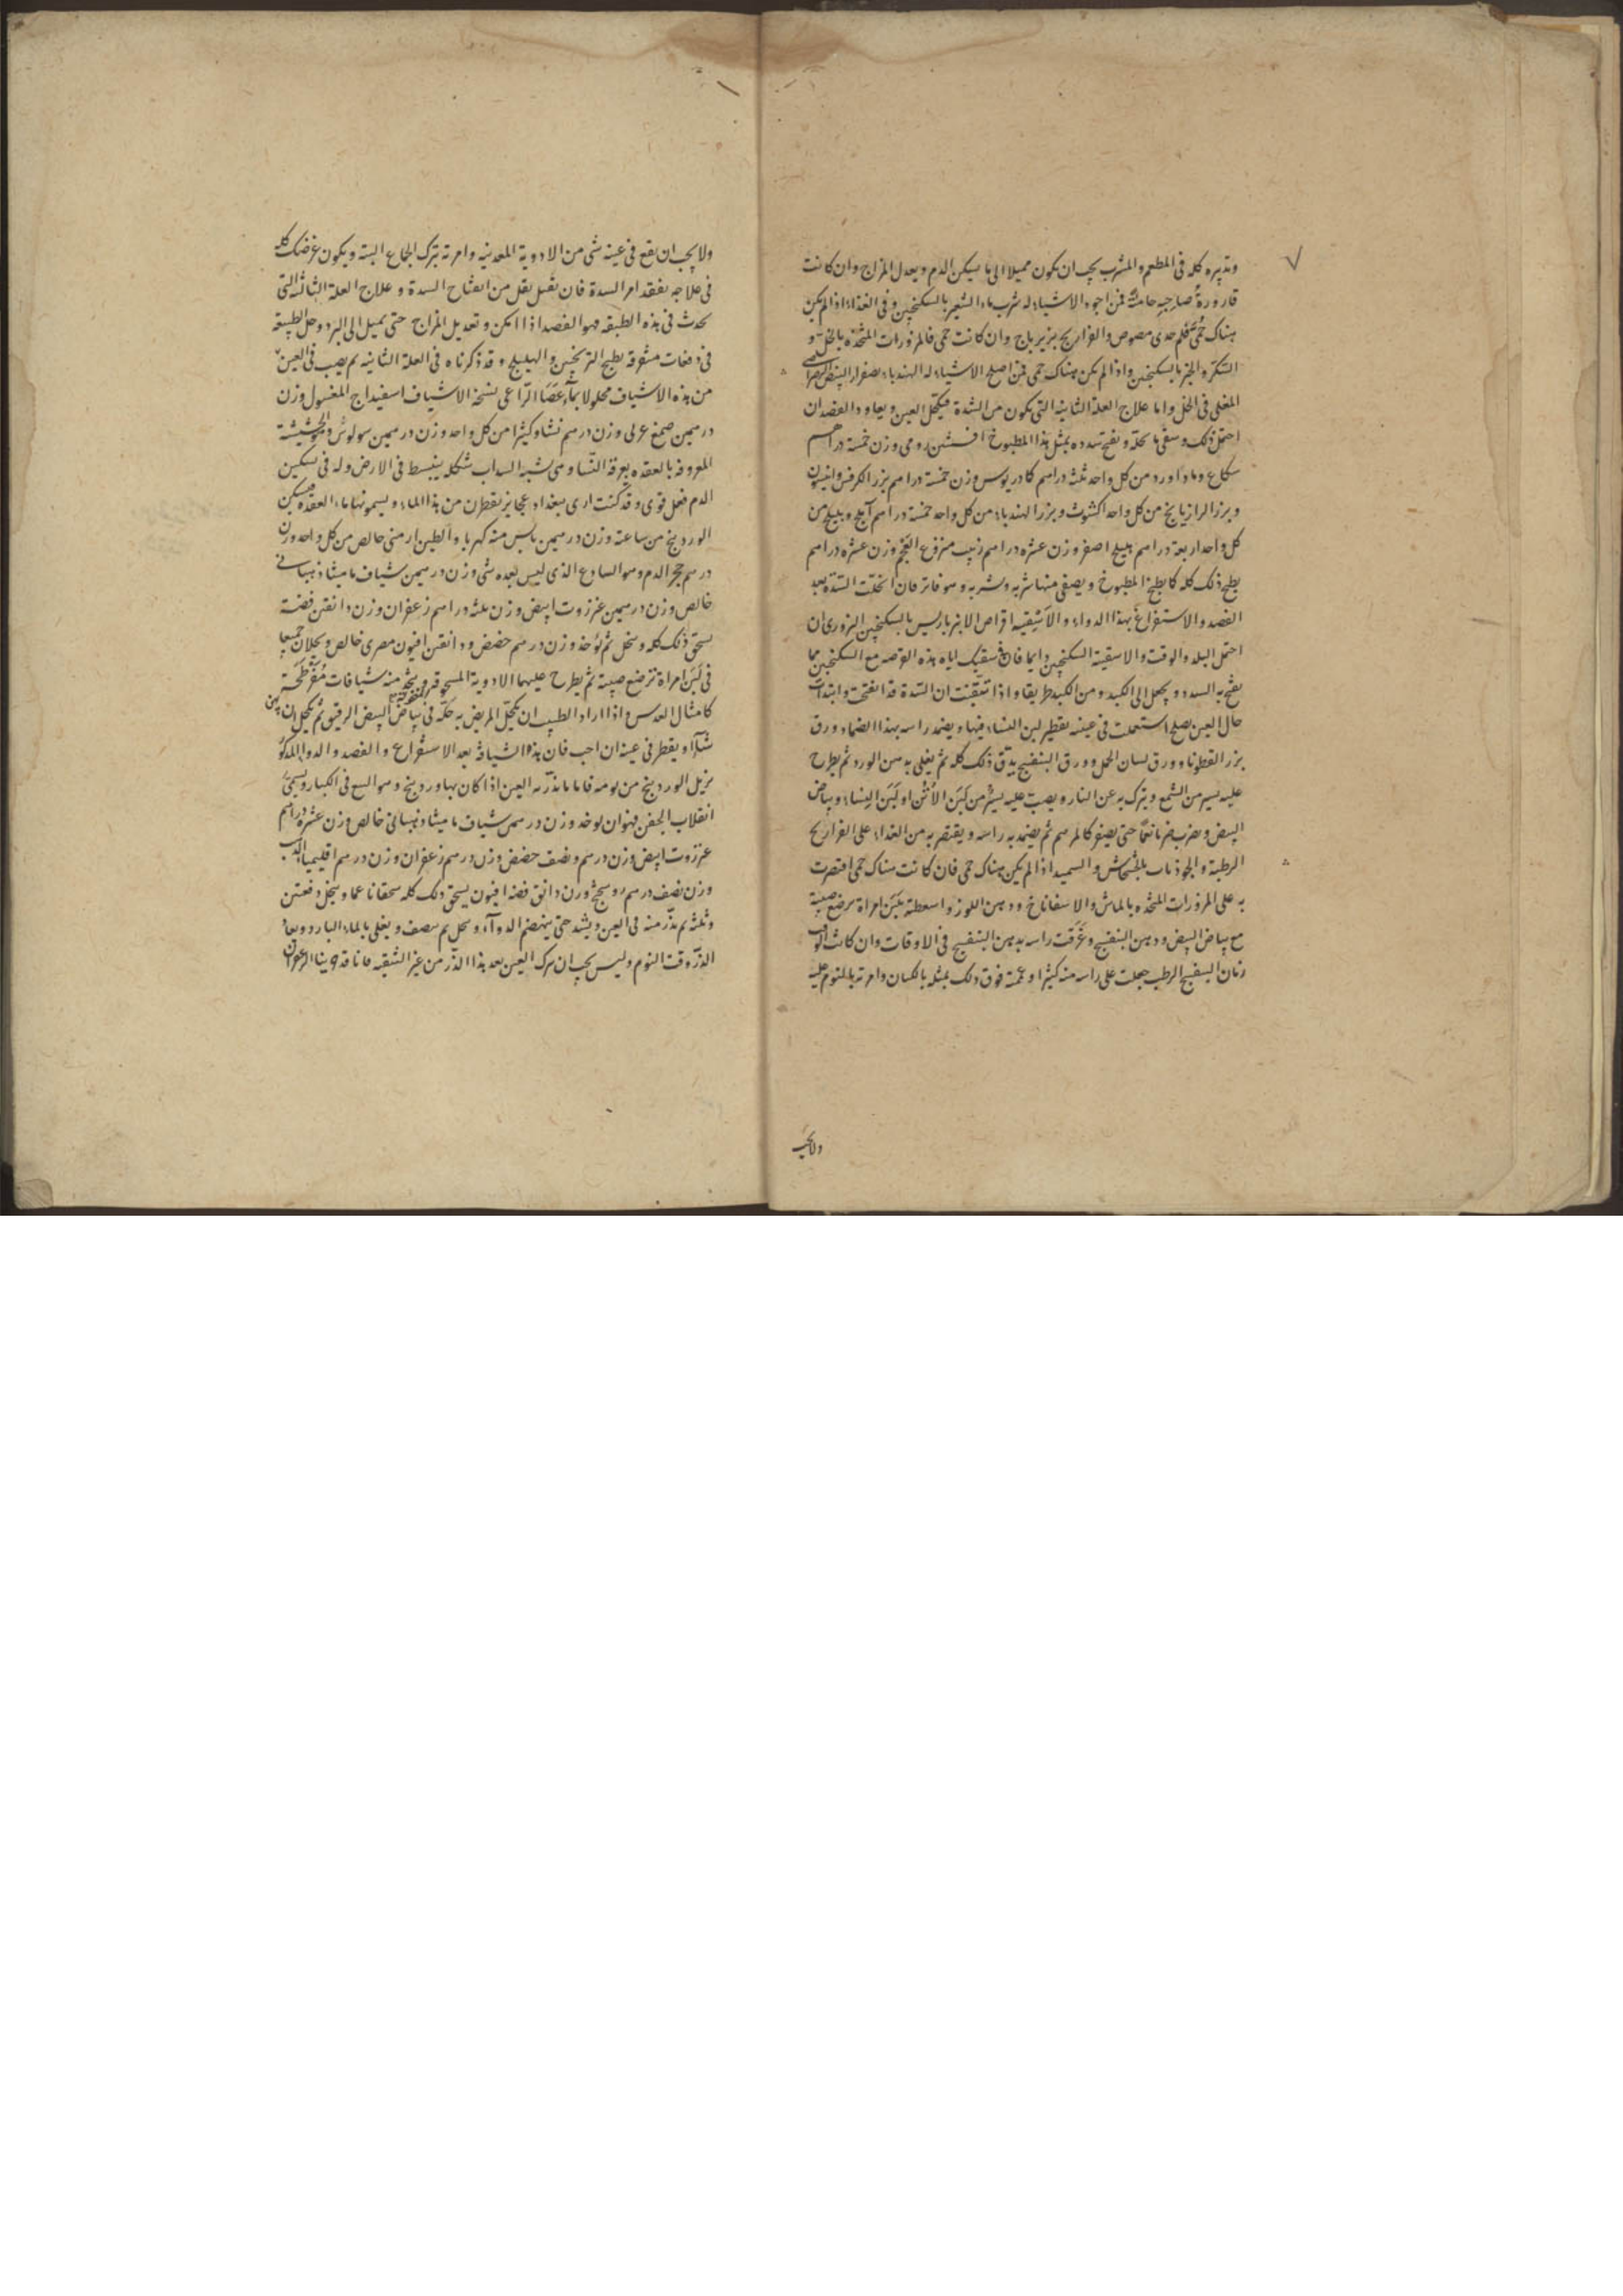 وتدبيره كله فى المطعم والمشرب يجب ان يكون مميلا الى ما يسكن الدم ويعدل المزاج وان كانت
قارورة صاحبه حامية فمن اجود الاشياء له شرب ماء الشعير بالسكنجبين وفى الغذاء اذا لم يكن
هناك حمى فلحم جدى مصوص والفراريج بزيرباج وان كانت حمى فالمزورات المتخذه بالخل و
السكر والخبز بالسكنجبين واذا لم يكن هناك حمى فمن اصلح الاشياء له الهندباء بصفرار البيض
المغلى فى الخل واما علاج العلة الثانية التى يكون من السدة فيكحل العين ويعاود الفصد ان
احتمل ذلك وسقى ما يحله ويفتح سدده بمثل هذا المطبوخ افسنتين رومى وزن خمسة دراهم
شكاع وماداورد من كل واحد ثلثة دراهم كمادريوس وزن خمسة دراهم بزر الكرفس وانيسون
وبزر الرازيانج من كل واحد اكشوث وبزر الهندباء من كل واحد خمسة دراهم املج وبليلج من
كل واحد اربعة دراهم هليلج اصفر وزن عشره دراهم زبيب منزوع العجم وزن عشره دراهم
يطبخ ذلك كله كما يطبخ المطبوخ ويصفى منها شربه وشربه وهو فاتر فان انحلت السدة بعد
الفصد والاستفراغ بهذا الدواء والا سقيه اقراص الانبرباريس بالسكنجبين البزورى ان
احتمل البلد والوقت والا سقيه السكنجبين دايما فان سقيك اياه هذه القرصه مع السكنجبين مما
يفتح به السدد ويجعل الى الكبد ومن الكبد طريقا واذا تيقنت ان السدة قد انفتحت وابتدات
حال العين يصلح استعملت فى عينه تقطير لبن النساء فيها ويضمد راسه بهذا الضماد ورق
بزر القطونا وورق لسان الحمل وورق البنفسج يدق ذلك كله ثم يغلى بدهن الورد ثم يطرح
عليه يسير من الشمع ويترك به عن النار ويصب عليه يسير من لبن الاتن او لبن النساء وبياض
البيض ويضرب ضربا ناعما حتى يصير كالمرهم ثم يضمد به راسه ويقتصر به من الغذاء على الفراريج
الرطبة والجوذاب بالخشخاش والسميد اذا لم يكن هناك حمى فان كانت هناك حمى اقتصرت
به على المزورات المتخذه بالماش والاسفاناخ ودهن اللوز واسعطته بلبن امراة ترضع صبية
مع بياض البيض ودهن البنفسج وغرقت راسه بدهن البنفسج فى الاوقات وان كانت
زمان البنفسج الرطب جعلت على راسه منه كثيرا وعممته فوق ذلك بمثله بالكتان وامرته بالنوم عليه
ولا يجب
ولا يجب ان يقع فى عينه شى من الادوية المعدنيه وامرته بترك الجماع البتة ويكون غرضك كله
فى علاجه تفقد امر السدة فان تغفل تغفل من انفتاح السدة وعلاج العلة الثالثه التى
تحدث فى هذه الطبقه فهو الفصد اذا امكن وتعديل المزاج حتى يميل الى البرد وحل الطبيعة
فى دفعات متفرقه بطبيخ الترنجبين والهليلج وقد ذكرناه فى العلة الثانيه ثم يصب فى العين
من هذه الاشياف محلولا بماء عصا الراعى نسخة الاشياف اسفيداج المغسول وزن
درهمين صمغ عربى وزن درهم نشا وكثيرا من كل واحد وزن درهمين سولوس والحشيشة
المعروفه بالعقده يعرفه النساء وهى شبه السداب شكله ينبسط فى الارض وله فى تسكين
الدم فعل قوى وقد كنت ارى ببغداد عجايز يقطرن من هذا الماء ويسمونها ماء العقده فيسكن
الوردينج من ساعته وزن درهمين بابس منه كهربا والطين ارمنى خالص من كل واحد وزن
درهم حجر الدم وهو الساوع الذى ليس بعده شى وزن درهمين شياف ماميثا ذنبانى
خالص وزن درهمين عنزروت ابيض وزن ثلثه دراهم زعفران وزن دانقين فضة
يسحق ذلك كله وينخل ثم يؤخذ وزن درهم حضض ودانقين افيون مصرى خالص ويحلان جميعا
فى لبن امراة ترضع صبية ثم يطرح عليهما الادوية المسحوقه ويتخذ منه شيافات مفرطحة
كامثال العدس واذا اراد الطبيب ان يكحل المريض به حكه فى بياض البيض الرقيق ثم يكحل ان
شاء او يقطر فى عينه ان احب فان هذه الشيافه بعد الاستفراغ والفصد والدواء المذكور
يزيل الوردينج من يومه فاما ما يذر به العين اذا كان بها وردينج وهو السع فى الكبار ويسمى
انقلاب الجفن فهو ان يوخد وزن درهمين شياف ماميثا ذنبسانى خالص وزن عشره دراهم
عنزروت ابيض وزن درهم ونصف حضض وزن درهم زعفران وزن درهم اقليميا الذهب
وزن نصف درهم روسختج وزن دانق فضه افيون يسحق ذلك كله سحقا ناعما وينخل دفعتين
وثلثه ثم يذر منه فى العين ويشد حتى ينهضم الدواء وينحل ثم ينصف ويغلى بالماء البارد ويعاود
الذر وقت النوم وليس يجب ان يترك العين بعد هذا الذر من غير التنقيه فانا قد